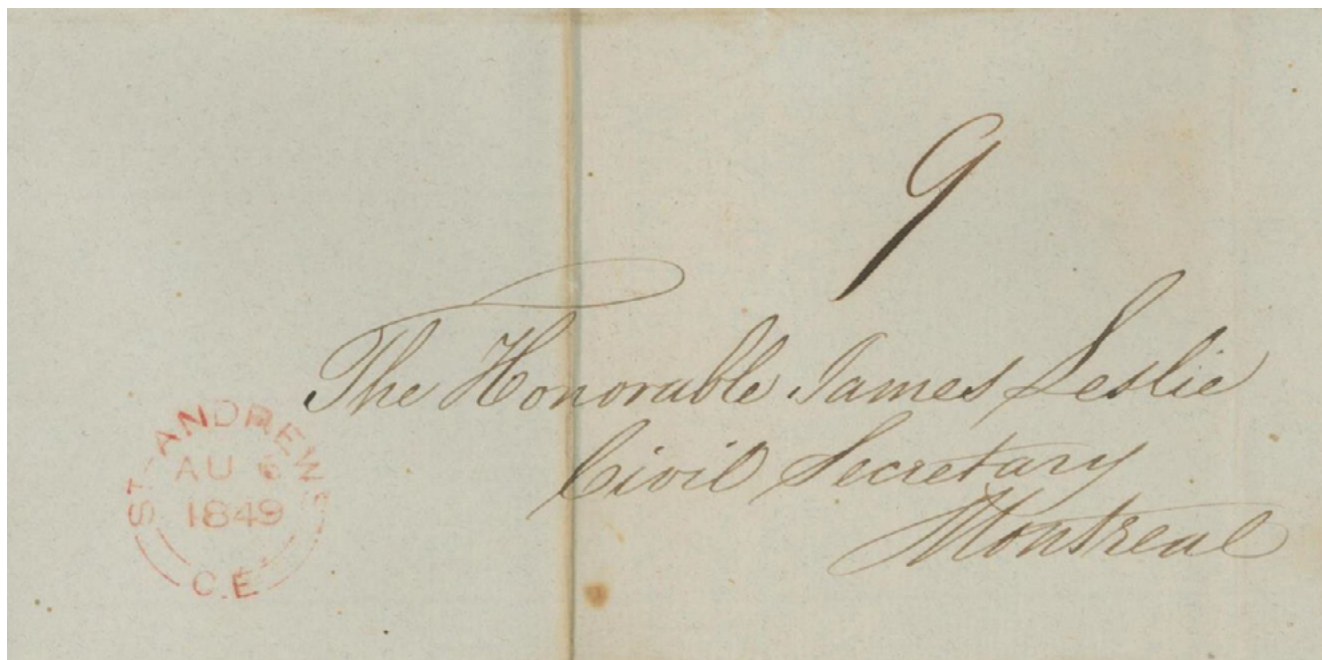 9
The Honorable James Leslie
Civil Secretary
Montreal
ST. ANDREWS
AU 6
1849
C.E